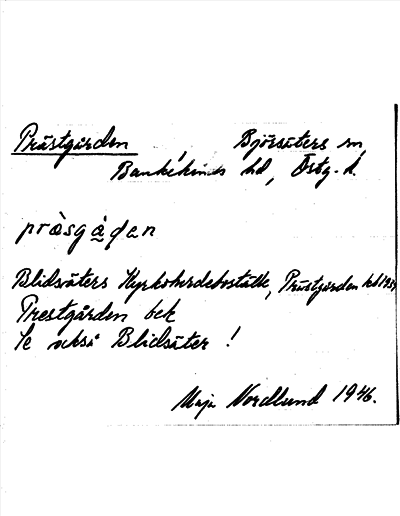 Prästgården Björsäters sn
Bankekinds hd, Östg. l.
pràsgá̱ḍan
Blidsäters Kyrkoherdeboställe, Prästgården
Prestgården bek
Se också Blidsäter !
Maja Nordlund 1946.